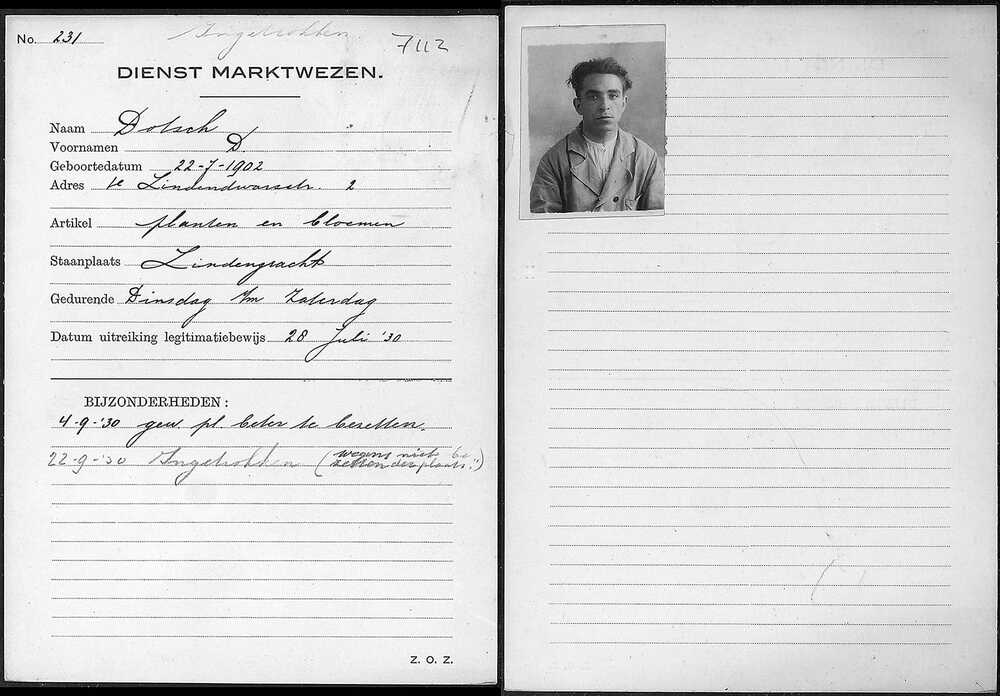 No. 231
Ingetrokken
7112
DIENST MARKTWEZEN.
Naam Dotsch
Voornamen D.
Geboortedatum 22-7-1902
Adres 1e Lindendwarsstr. 2
Artikel planten en bloemen
Staanplaats Lindengracht
Gedurende Dinsdag t/m Zaterdag
Datum uitreiking legitimatiebewijs 28 Juli '30
BIJZONDERHEDEN:
4-9-'30 gew. pl. beter te bezetten.
22-9-'30 Ingetrokken (wegens niet be
zetten der plaats.)
Z. O. Z.